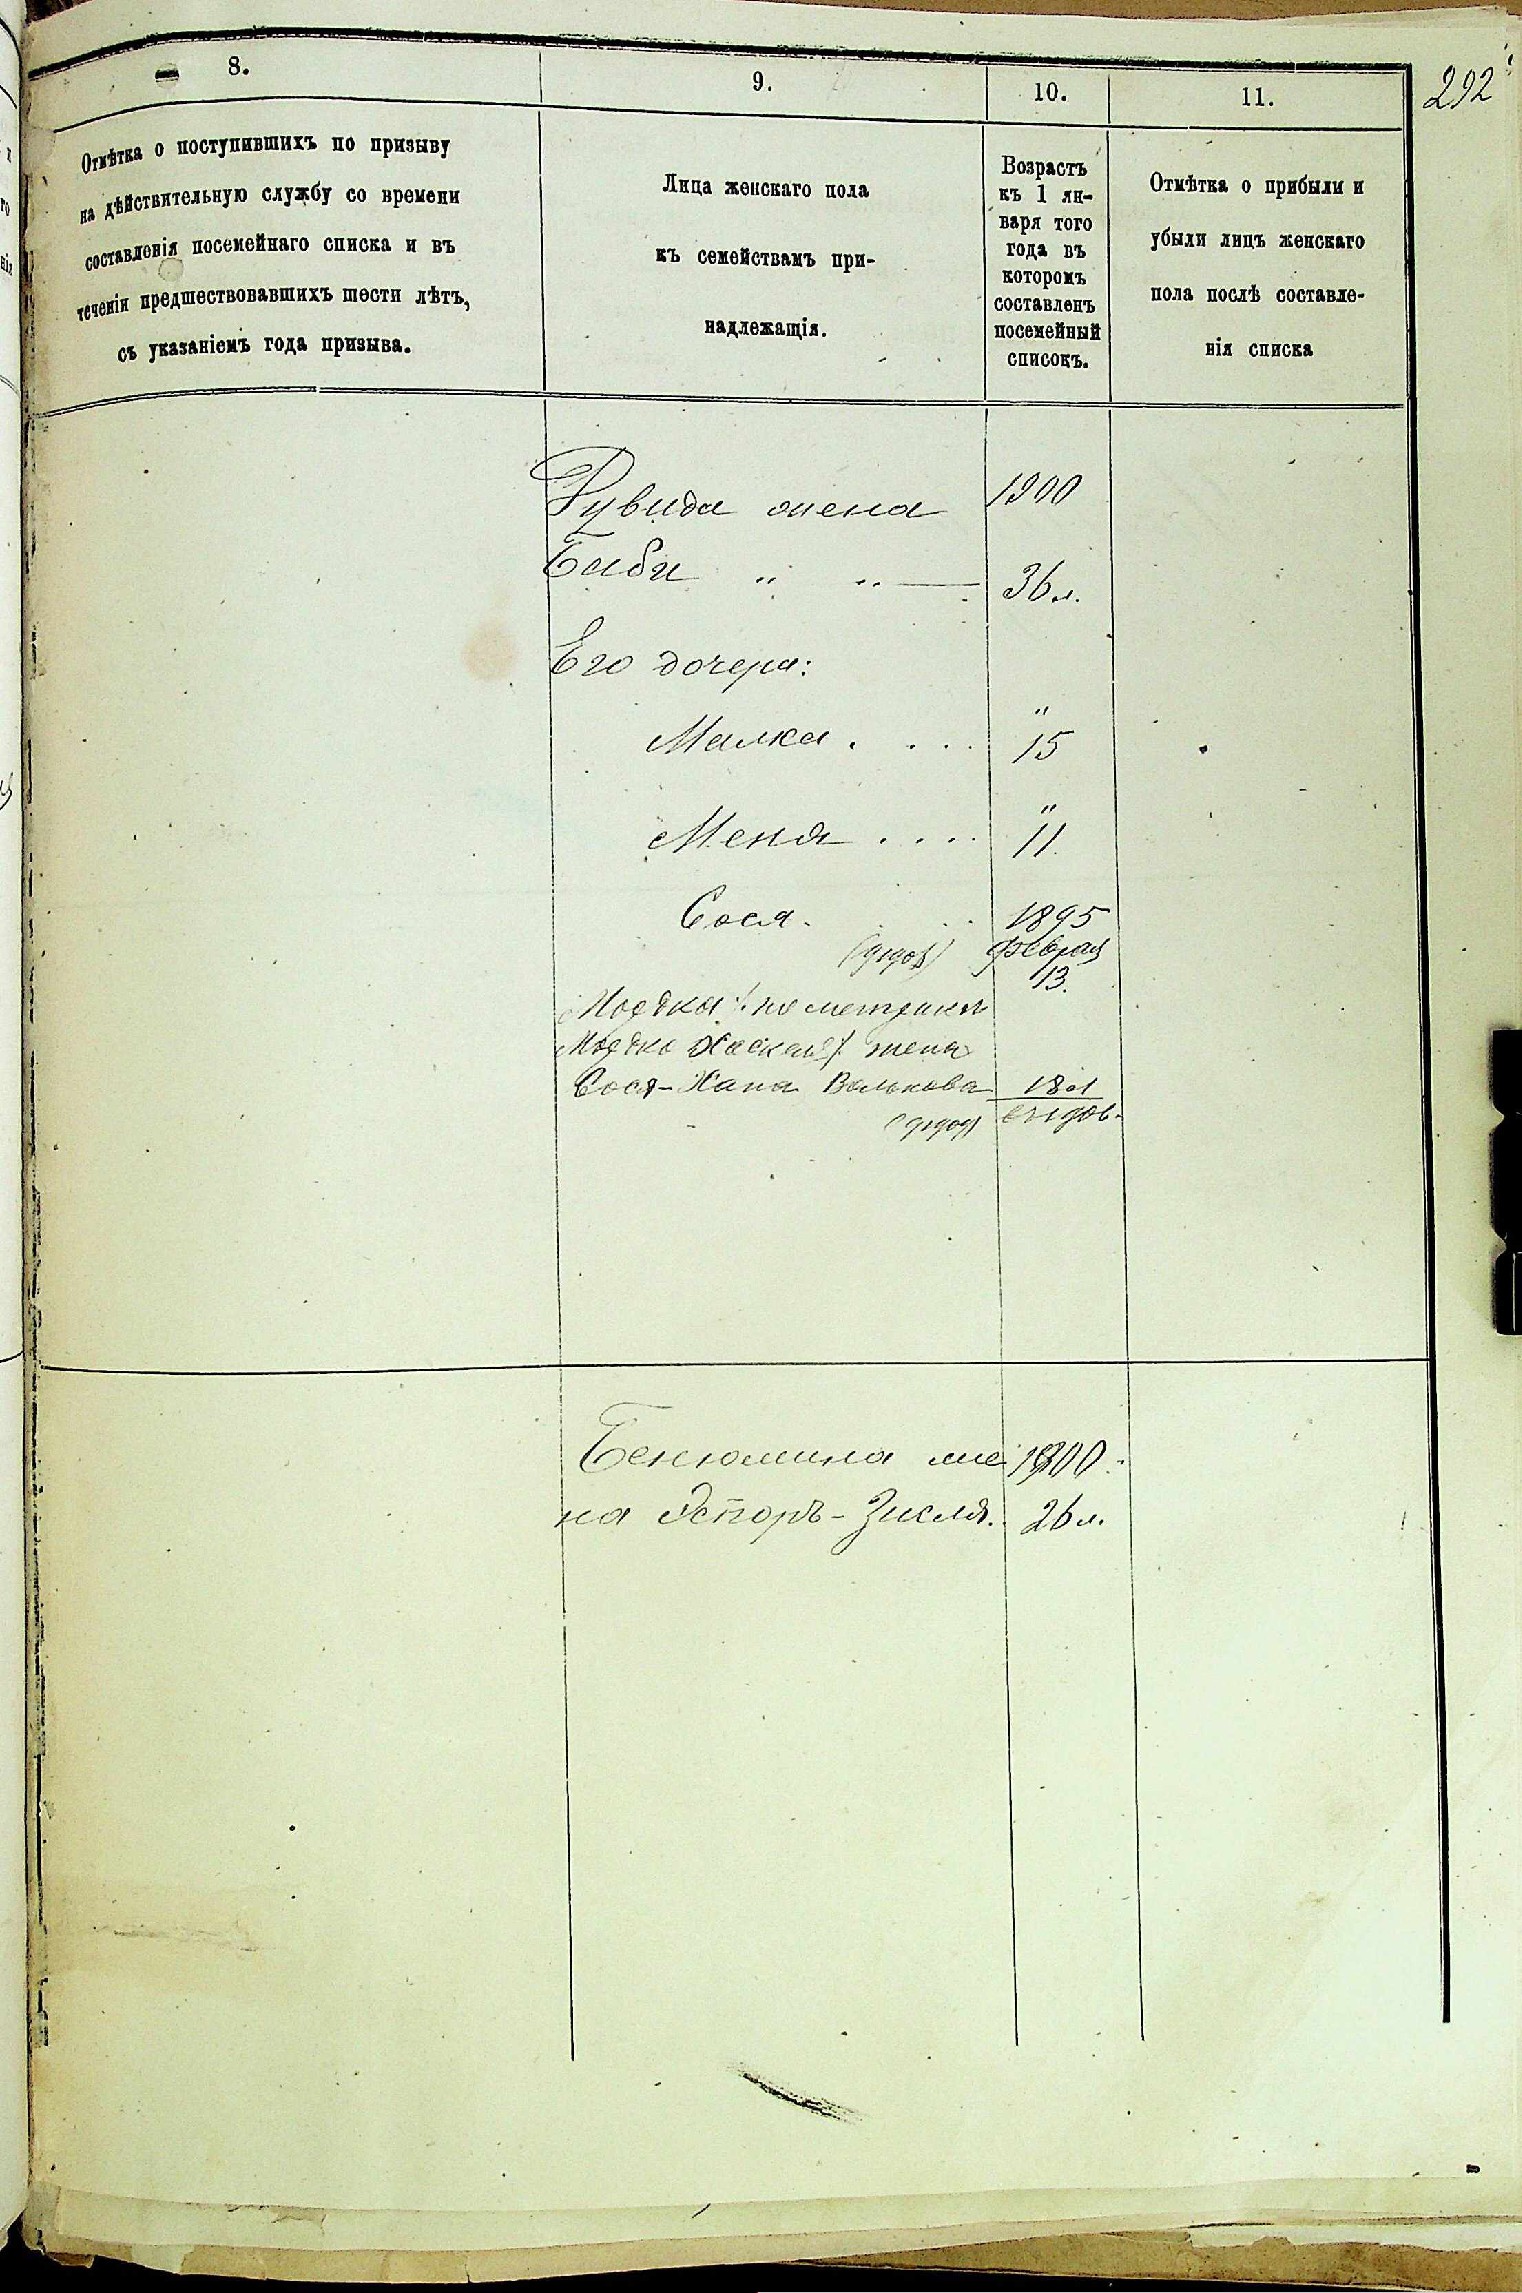 292
8.
9.
10.
11.
Отмѣтка о поступившихъ по призыву
на дѣйствительную службу со времени
составленія посемейнаго списка и въ
теченіи предшествовавшихъ шести лѣтъ,
съ указаніемъ года призыва.
Лица женскаго пола
къ семействамъ при-
надлежащія.
Возрастъ
къ 1 ян-
варя того
года въ
которомъ
составленъ
посемейный
списокъ.
Отмѣтка о прибыли и
убыли лицъ женскаго
пола послѣ составле-
нія списка
жена 1900
— 36 л.
Его дочери:
Малка . . . . " 15
Меня . . . . " 11
Сося. . . 1895
Февраля
13.
по метрикѣ
Хаскель жена
Сося-Хана Волькова
Бенюмина же 1900
на Эстеръ-Зисля. 26 л.